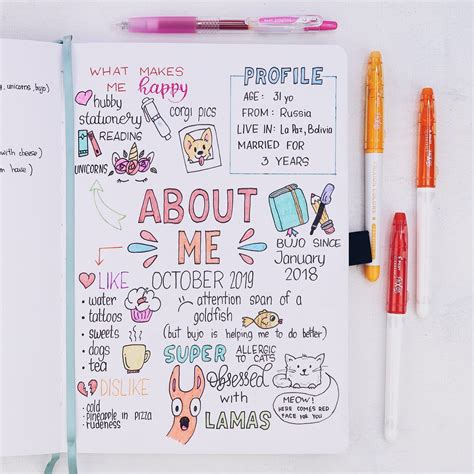 , unicorns, bujo)
with cheese)
m house.)
WHAT MAKES
ME happy
hubby
stationery
READING
UNICORNS
corgi pics
PROFILE
AGE: 31 yo
FROM: Russia
LIVE IN: La Paz, Bolivia
MARRIED FOR
3 YEARS
ABOUT
ME
BUJO SINCE
January
2018
OCTOBER 2019
LIKE
• water
• tattoos
• sweets
• dogs
• tea
attention span of a
goldfish
(but bujo is helping me to do better)
DISLIKE
• cold
• pineapple in pizza
• rudeness
SUPER ALLERGIC
TO CATS
Obsessed
with
LAMAS
MEOW!
HERE COMES RED
FACE FOR YOU